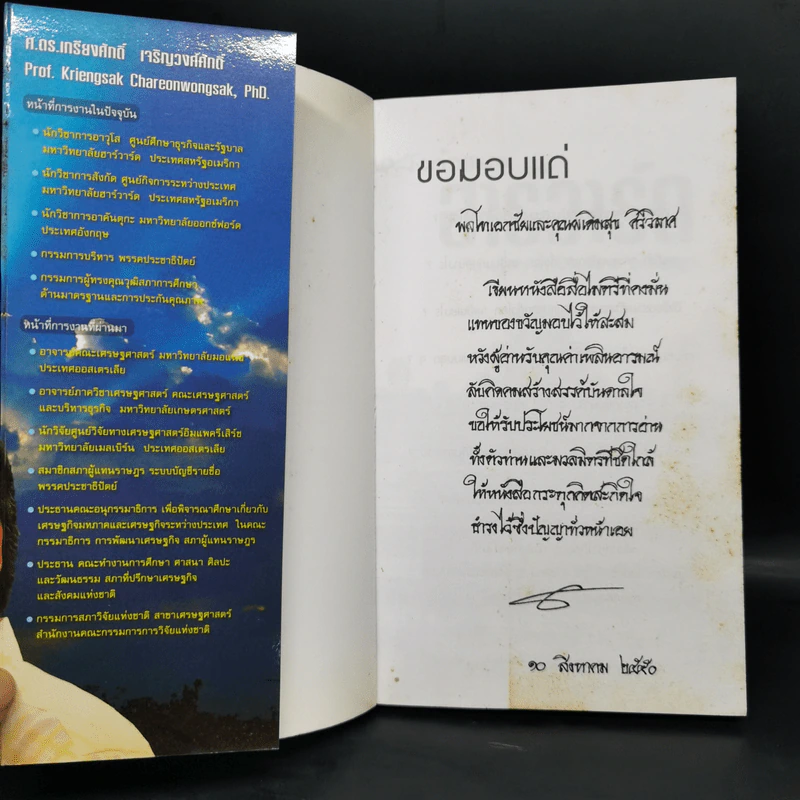 ศ.ดร.เกรียงศักดิ์ เจริญวงศ์ศักดิ์
Prof. Kriengsak Chareonwongsak, PhD.
หน้าที่การงานในปัจจุบัน
นักวิชาการอาวุโส ศูนย์ศึกษาธุรกิจและรัฐบาล
มหาวิทยาลัยฮาร์วาร์ด ประเทศสหรัฐอเมริกา
นักวิชาการสังกัด ศูนย์กิจการระหว่างประเทศ
มหาวิทยาลัยฮาร์วาร์ด ประเทศสหรัฐอเมริกา
นักวิชาการอาคันตุกะ มหาวิทยาลัยออกซ์ฟอร์ด
ประเทศอังกฤษ
กรรมการบริหาร พรรคประชาธิปัตย์
กรรมการผู้ทรงคุณวุฒิสภาการศึกษา
ด้านมาตรฐานและการประกันคุณภาพ
หน้าที่การงานที่ผ่านมา
อาจารย์คณะเศรษฐศาสตร์ มหาวิทยาลัยมอแนช
ประเทศออสเตรเลีย
อาจารย์ภาควิชาเศรษฐศาสตร์ คณะเศรษฐศาสตร์
และบริหารธุรกิจ มหาวิทยาลัยเกษตรศาสตร์
นักวิจัยศูนย์วิจัยทางเศรษฐศาสตร์อิมแพครีเสิร์ช
มหาวิทยาลัยเมลเบิร์น ประเทศออสเตรเลีย
สมาชิกสภาผู้แทนราษฎร ระบบบัญชีรายชื่อ
พรรคประชาธิปัตย์
ประธานคณะอนุกรรมาธิการ เพื่อพิจารณาศึกษาเกี่ยวกับ
เศรษฐกิจมหภาคและเศรษฐกิจระหว่างประเทศ ในคณะ
กรรมาธิการ การพัฒนาเศรษฐกิจ สภาผู้แทนราษฎร
ประธาน คณะทำงานการศึกษา ศาสนา ศิลปะ
และวัฒนธรรม สภาที่ปรึกษาเศรษฐกิจ
และสังคมแห่งชาติ
กรรมการสภาวิจัยแห่งชาติ สาขาเศรษฐศาสตร์
สำนักงานคณะกรรมการการวิจัยแห่งชาติ
ขอมอบแด่
พลโทเอกชัยและคุณ
เขียนหนังสือสื่อไมตรีที่คงมั่น
แทนของขวัญมอบไว้ให้สะสม
หวังผู้อ่านรับคุณค่าเพลินอารมณ์
ลับคิดคมสร้างสรรค์บันดาลใจ
ขอให้รับประโยชน์มากจากการอ่าน
ทั้งตัวท่านและมวลมิตรที่ชิดใกล้
ให้หนังสือกระตุกคิดสะกิดใจ
ธำรงไว้ซึ่งปัญญาทั่วหน้าเอย
๑๐ สิงหาคม ๒๕๕๐